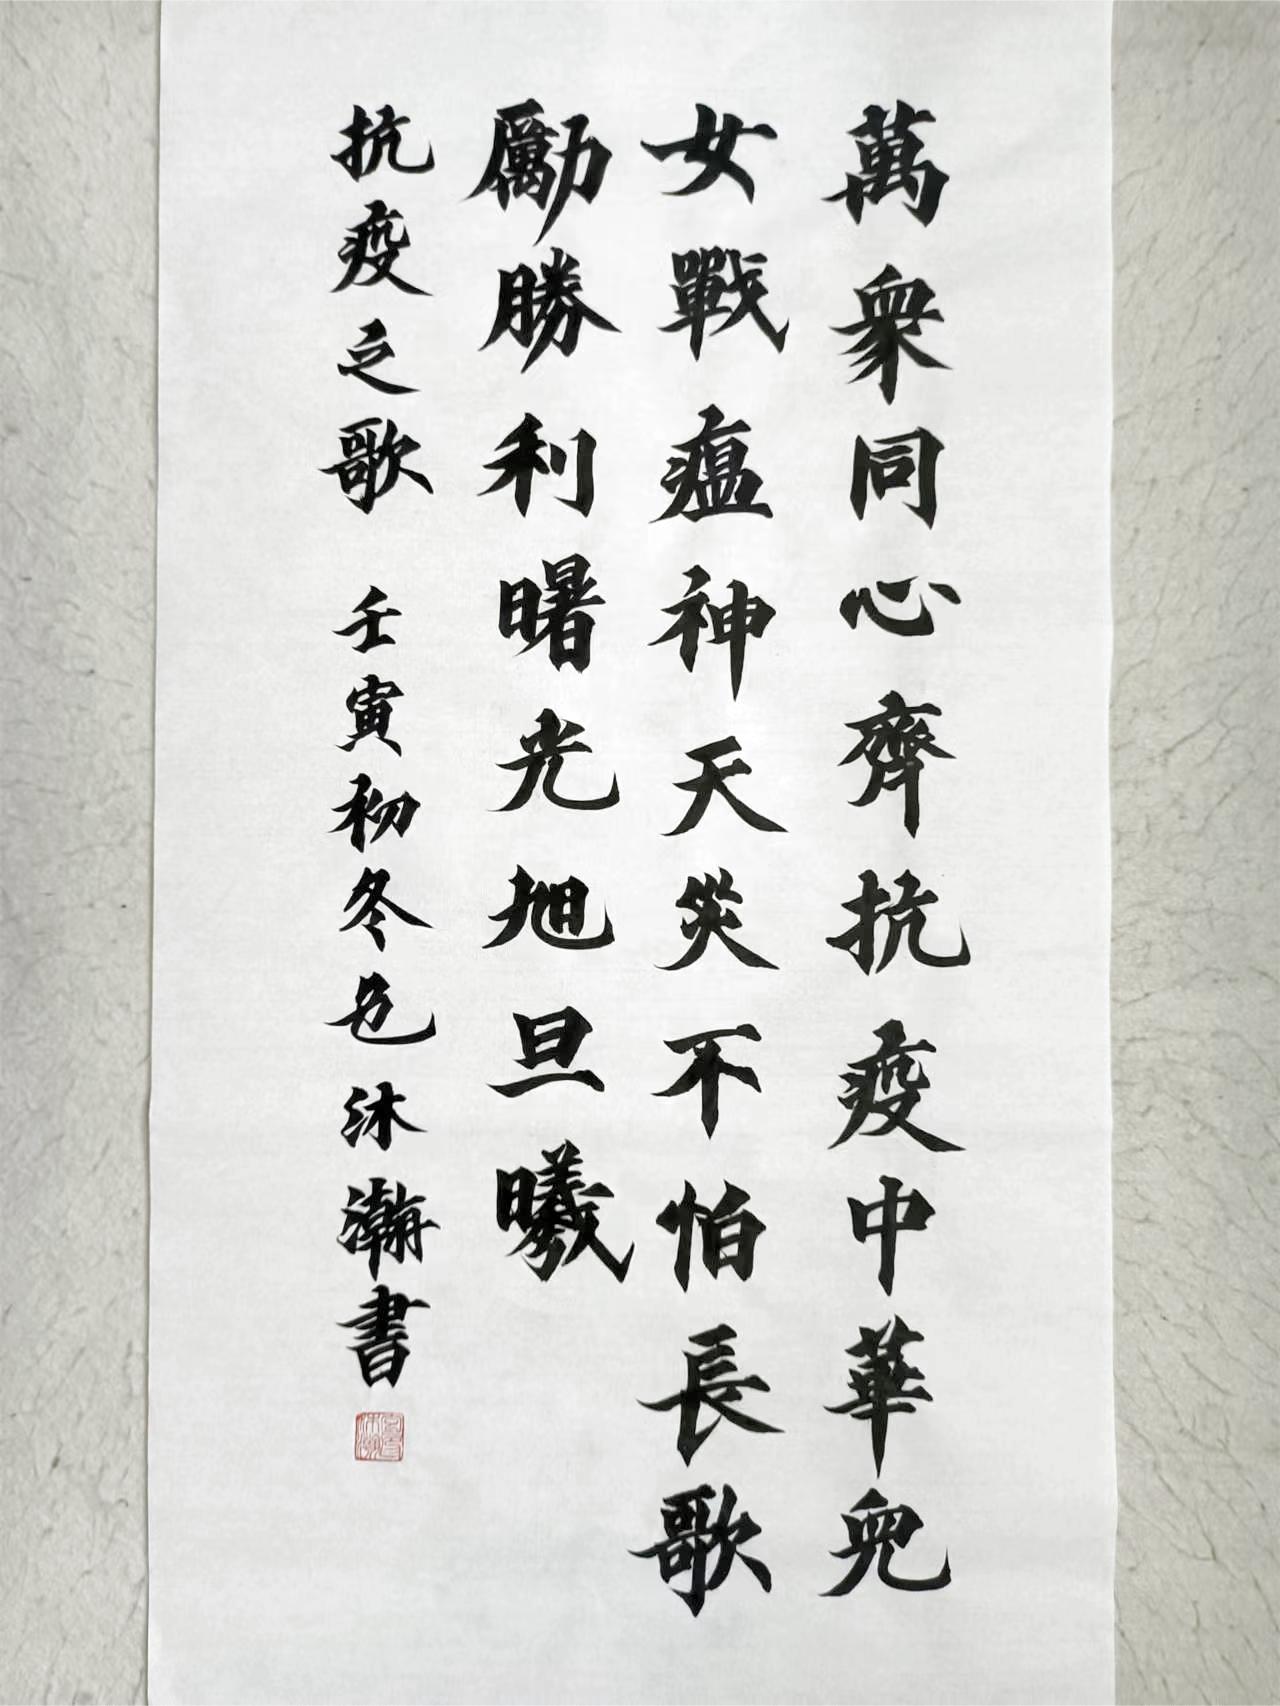 萬衆同心齊抗疫中華兒
女戰瘟神天災不怕長歌
勵勝利曙光旭旦曦
抗疫之歌 壬寅初冬 沐瀚書